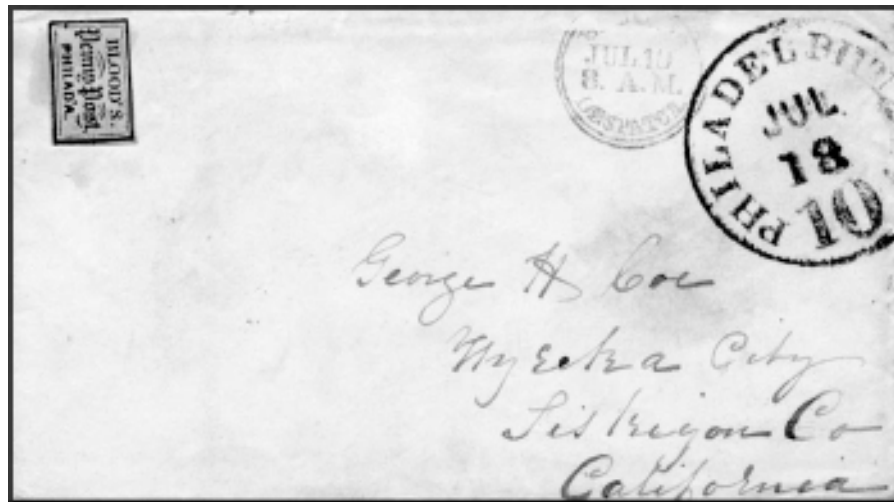 BLOOD'S
Penny Post
PHILAD'A.
JUL 18
8. A.M.
DESPATCH
PHILADELPHIA
JUL
18
10
George H Coe
Wyreka City
Siskiyou Co
California